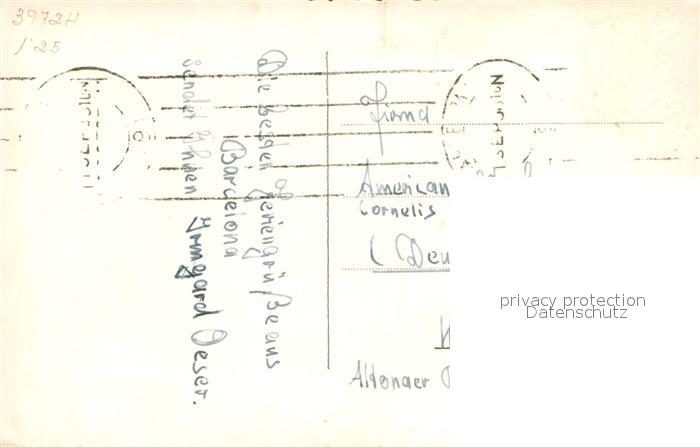 39724
125
Die besten Feriengrüße aus
Barcelona
sendet Ihnen Irmgard Oeser.
Firma
American
Cornelis
( Deu
Altonaer
privacy protection
Datenschutz